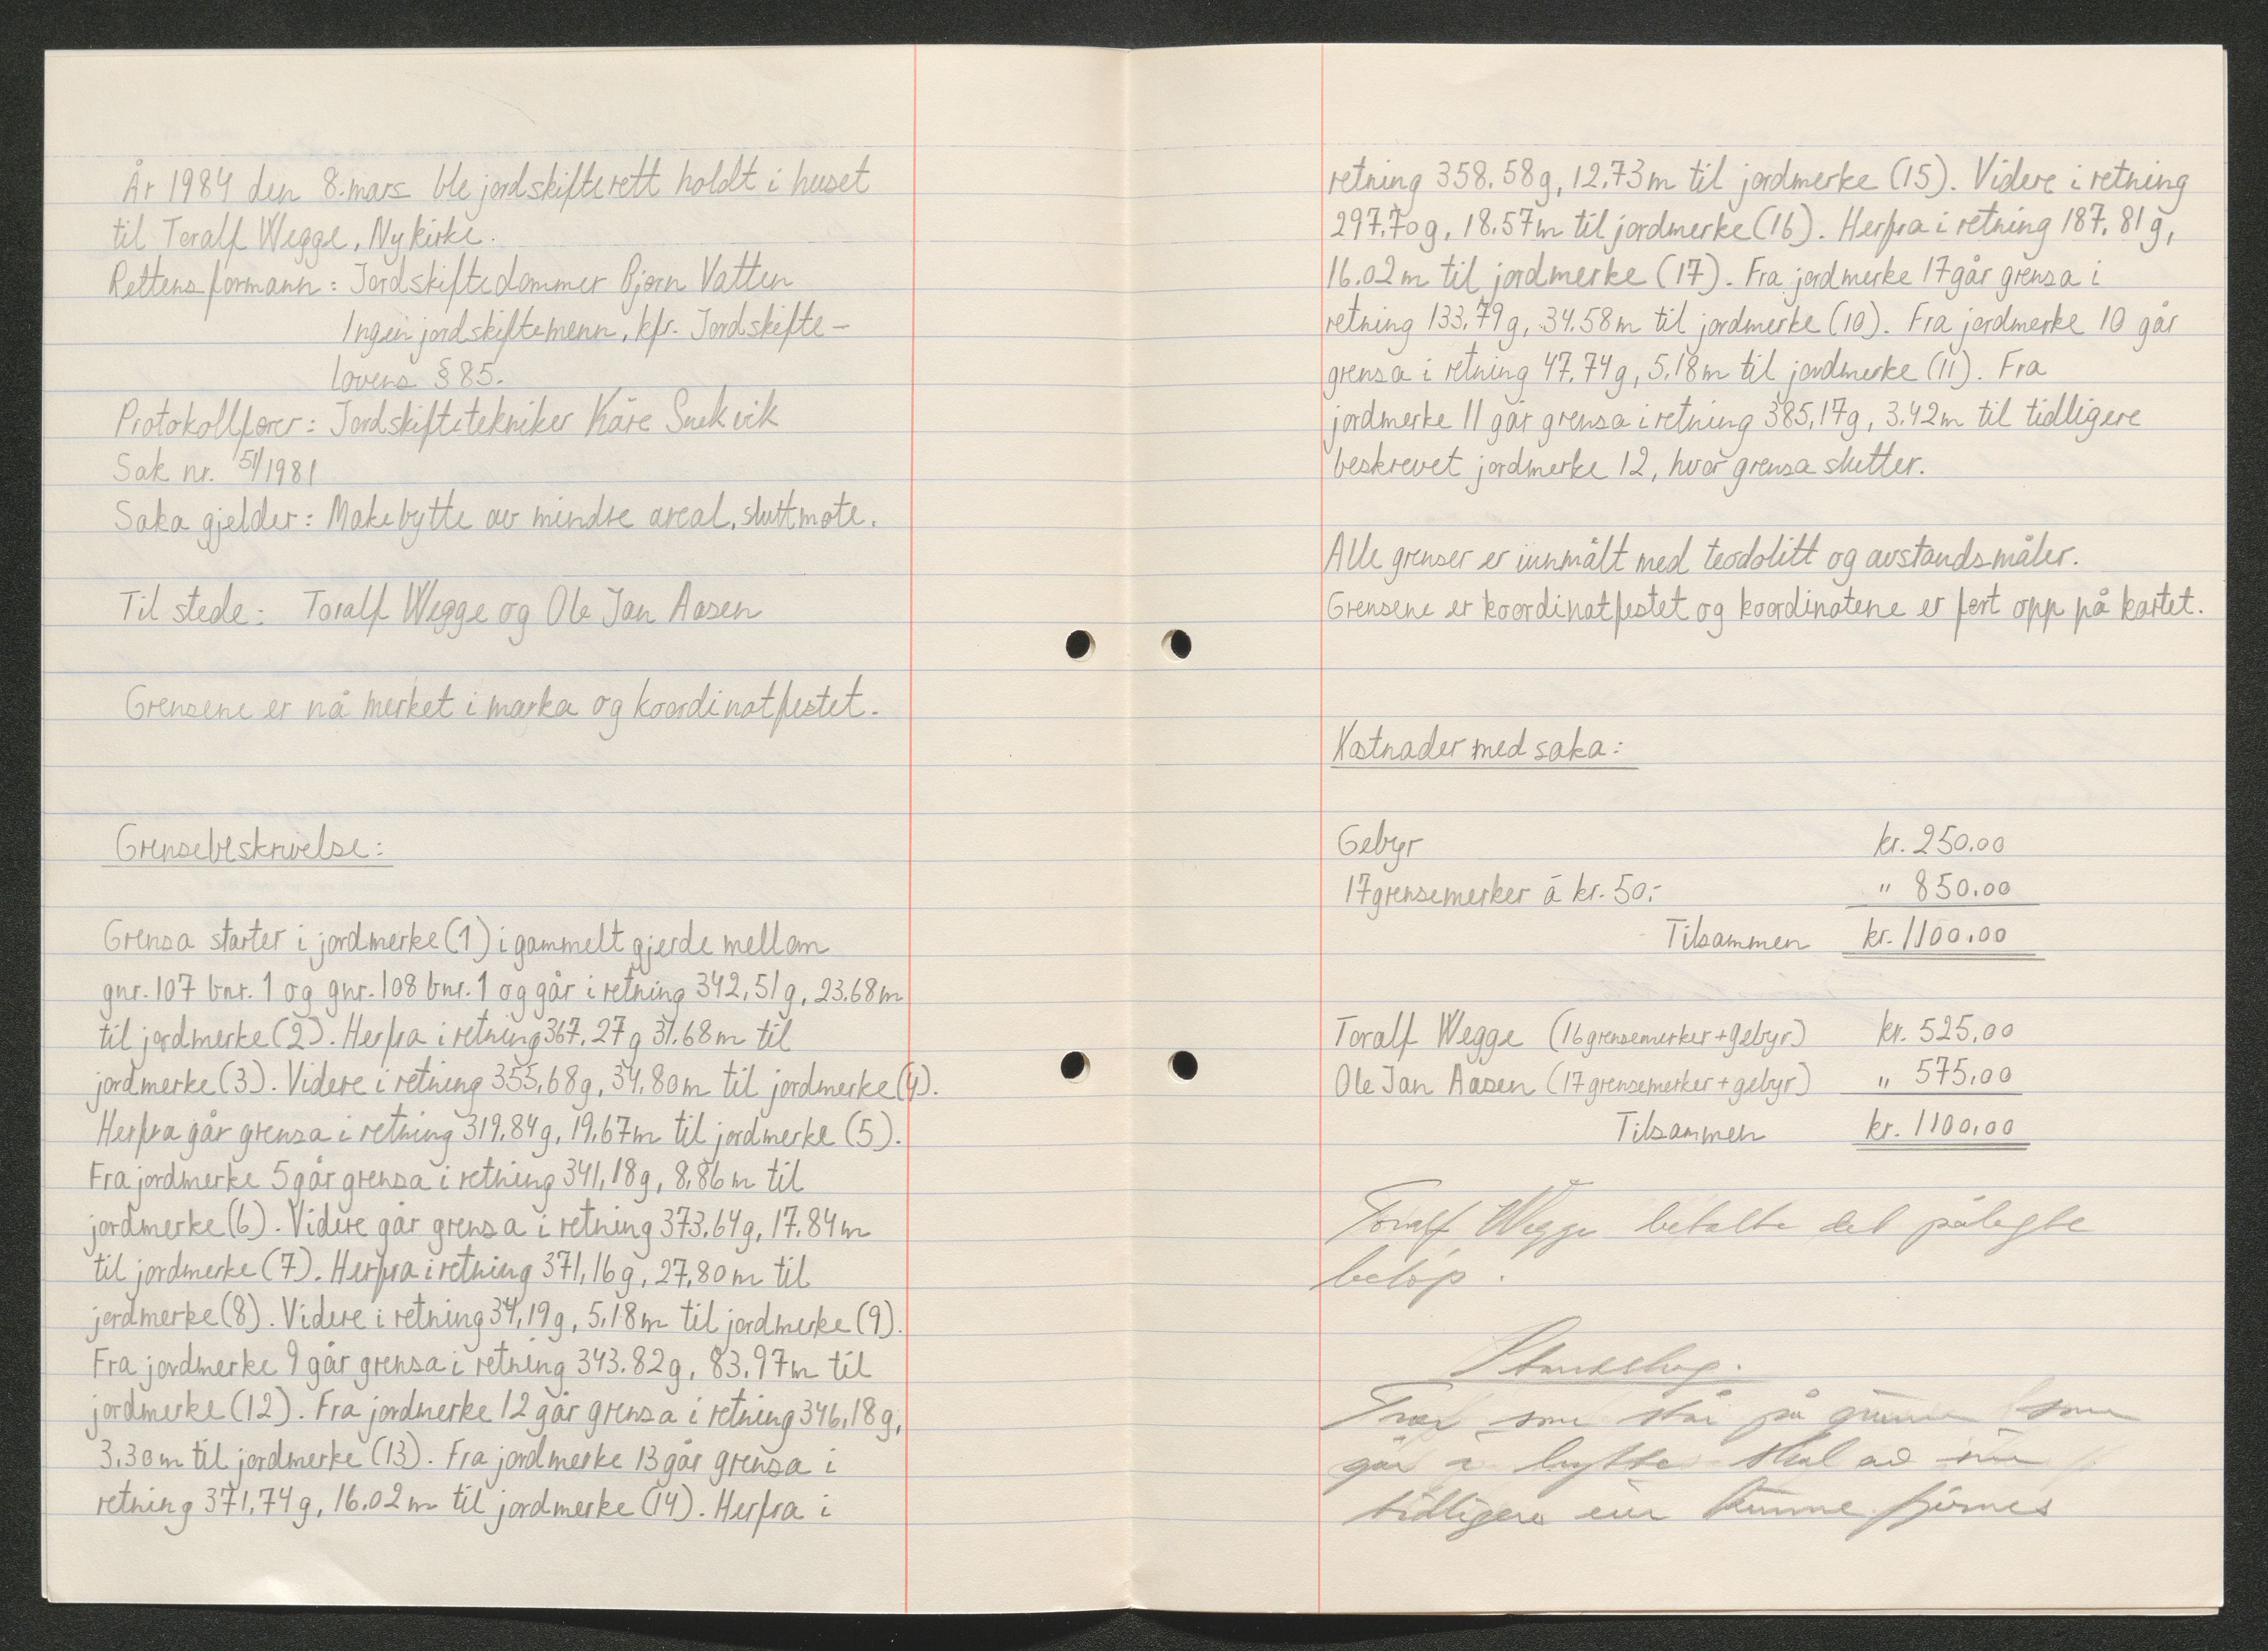 År 1984 den 8. mars ble jordskifterett holdt i huset
til Toralf Wegge, Nykirke.
Rettens formann: Jordskiftedommer Bjørn Vatten
Ingen jordskiftemenn, kfr. Jordskifte-
lovens § 85.
Protokollfører: Jordskiftetekniker Kåre Snekvik
Sak nr. 51/1981
Saka gjelder: Makebytte av mindre areal, sluttmøte.
Til stede: Toralf Wegge og Ole Jan Aasen
Grensene er nå merket i marka og koordinatfestet.
Grensebeskrivelse:
Grensa starter i jordmerke (1) i gammelt gjerde mellom
gnr. 107 bnr. 1 og gnr. 108 bnr. 1 og går i retning 342,51g, 23.68m
til jordmerke (2). Herfra i retning 367,27g 31.68m til
jordmerke (3). Videre i retning 355,68g, 34,80m til jordmerke (4).
Herfra går grensa i retning 319,84g, 19,67m til jordmerke (5).
Fra jordmerke 5 går grensa i retning 341,18g, 8,86m til
jordmerke (6). Videre går grensa i retning 373,64g, 17.84m
til jordmerke (7). Herfra i retning 371,16g, 27,80m til
jordmerke (8). Videre i retning 34,19g, 5,18m til jordmerke (9).
Fra jordmerke 9 går grensa i retning 343.82g, 83.97m til
jordmerke (12). Fra jordmerke 12 går grensa i retning 346,18g,
3,30m til jordmerke (13). Fra jordmerke 13 går grensa i
retning 371,74g, 16.02m til jordmerke (14). Herfra i
retning 358.58g, 12.73m til jordmerke (15). Videre i retning
297,70g, 18.57m til jordmerke (16). Herfra i retning 187,81g,
16.02m til jordmerke (17). Fra jordmerke 17 går grensa i
retning 133,79g, 34.58m til jordmerke (10). Fra jordmerke 10 går
grensa i retning 47,74g, 5,18m til jordmerke (11). Fra
jordmerke 11 går grensa i retning 385,17g, 3.42m til tidligere
beskrevet jordmerke 12, hvor grensa slutter.
Alle grenser er innmålt med teodolitt og avstandsmåler.
Grensene er koordinatfestet og koordinatene er ført opp på kartet.
Kostnader med saka:
Gebyr kr. 250.00
17 grensemerker á kr. 50,- " 850.00
Tilsammen kr. 1100.00
Toralf Wegge (16 grensemerker + gebyr) kr. 525,00
Ole Jan Aasen (17 grensemerker + gebyr) " 575,00
Tilsammen kr. 1100,00
Toralf Wegge betalte det pålegte
beløp.
som står på som
går i bytte skal av
tidligere eier kunne fjernes